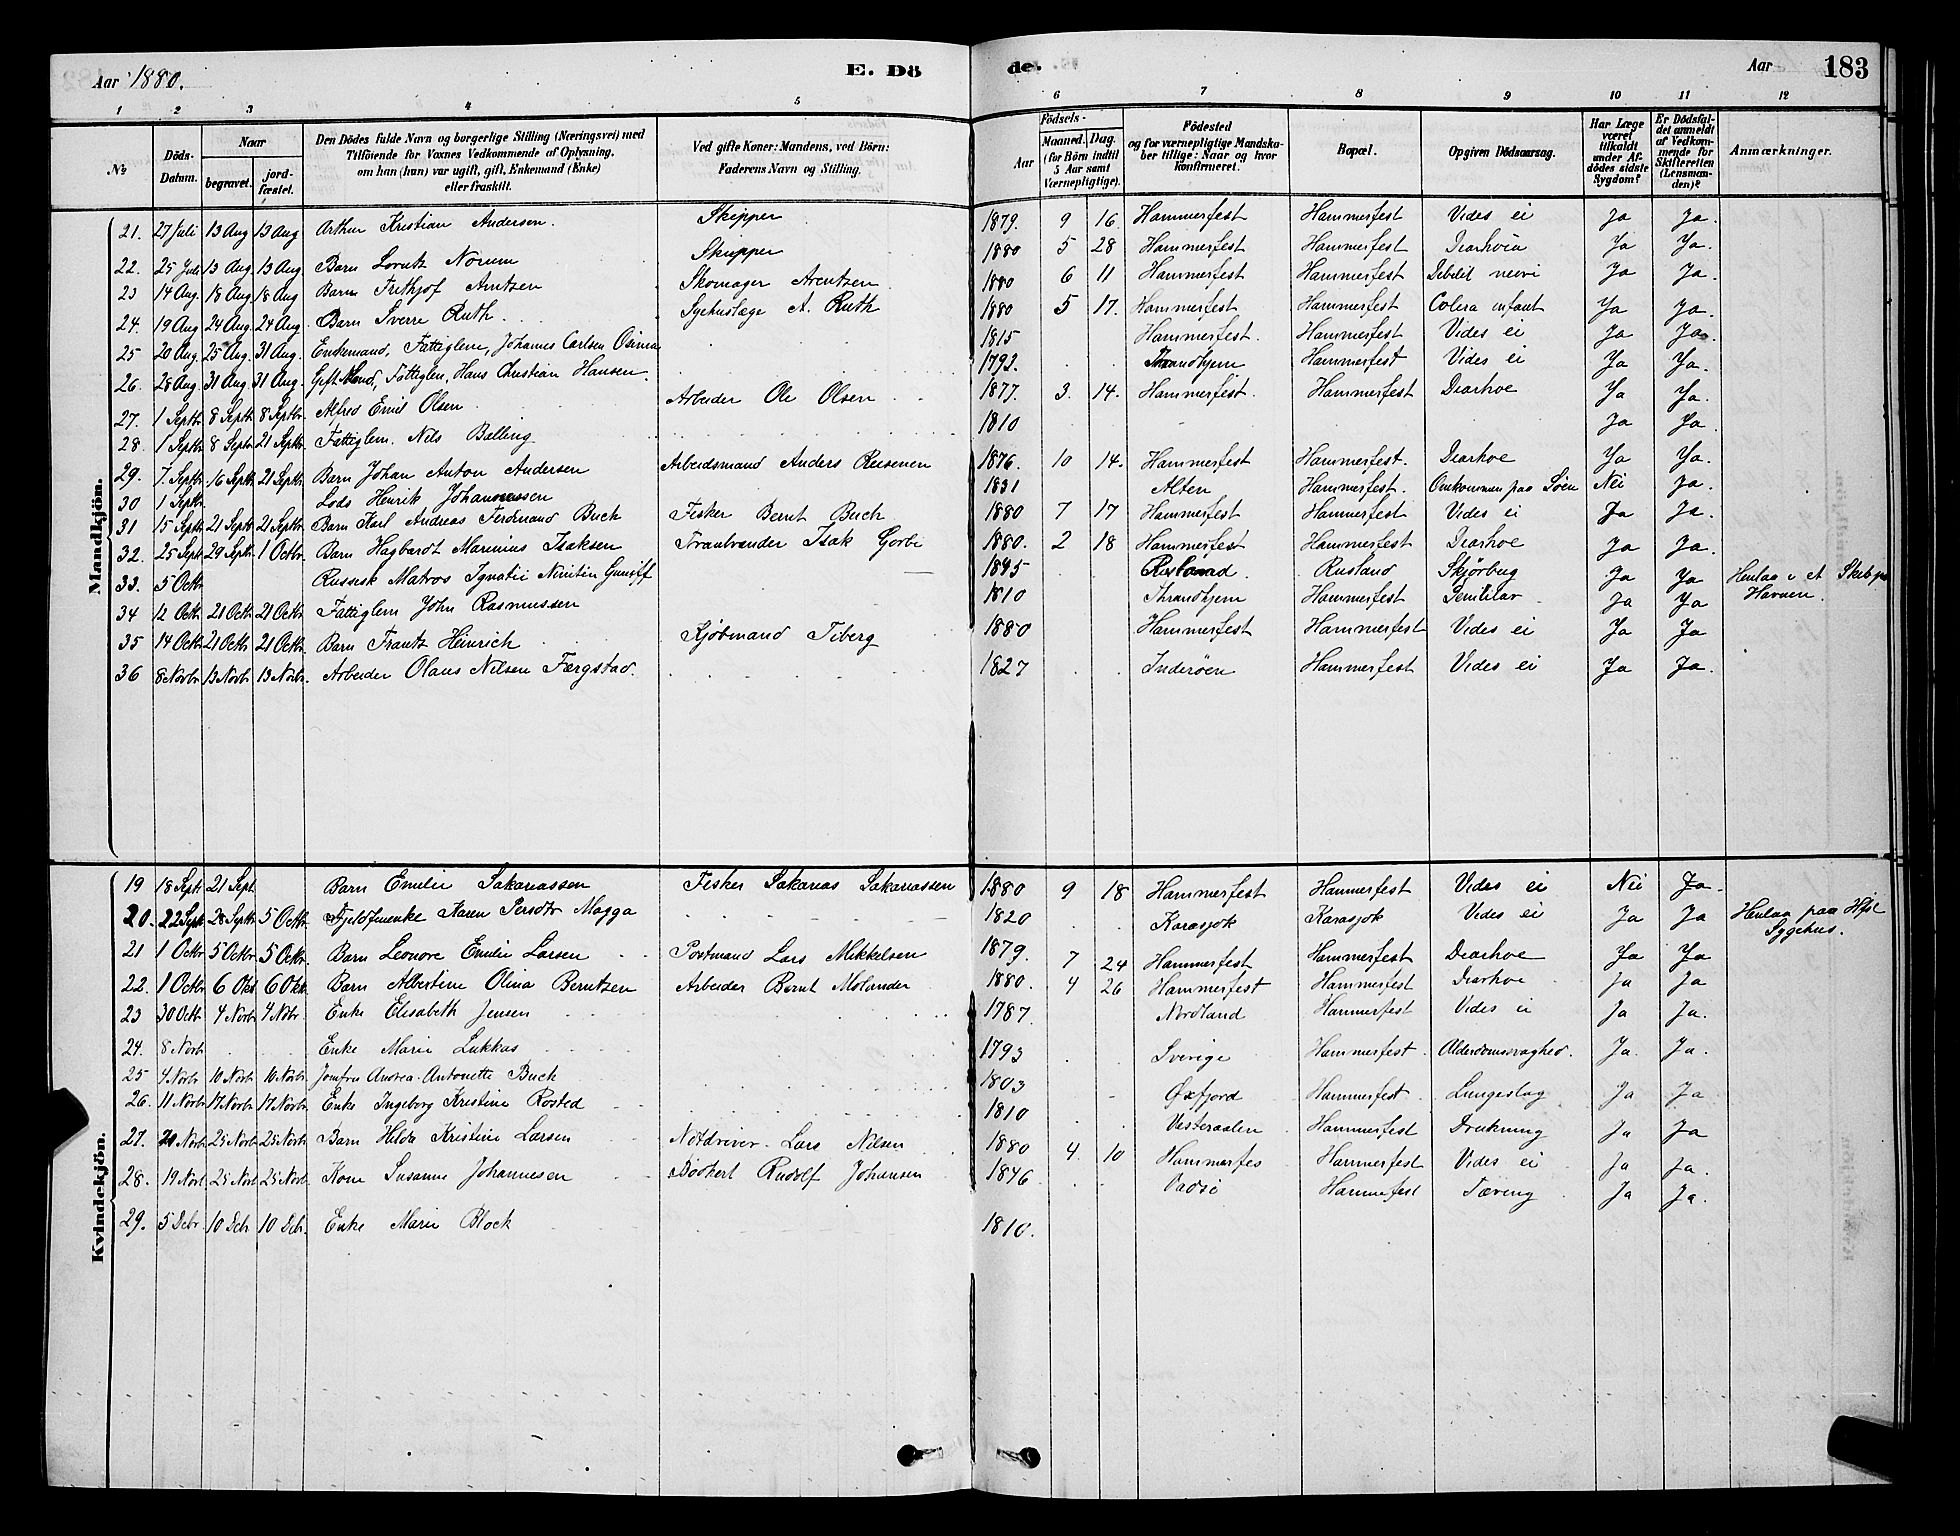 Aar 1880.
E. Dö
de.
Aar
183
1 2 3 4 5 6 7 8 9 10 11 12
№
Döds-Datum.
Naar
begravet.
jord-fæstet.
Den Dödes fulde Navn og borgerlige Stilling (Næringsvei) med
Tilföiende for Voxnes Vedkommende af Oplysning,
om han (hun) var ugift, gift, Enkemand (Enke)
eller fraskilt.
Ved gifte Koner: Mandens, ved Börn:
Faderens Navn og Stilling.
Födsels-
Aar
Maaned. Dag.
(for Börn indtil
5 Aar samt
Værnepligtige).
Födested
og for værnepligtige Mandska-
ber tillige: Naar og hvor
konfirmeret.
Bopæl.
Opgiven Dödsaarsag.
Har Læge
været
tilkaldt
under Af-
dödes sidste
Sygdom?
Er Dödsfal-
det anmeldt
af Vedkom-
mende for
Skifteretten
(Lensman-
den)?
Anmærkninger.
Mandkjön.
21. 27 Juli 13 Aug 13 Aug Arthur Kristian Andersen. Skipper 1879. 9 16. Hammerfest Hammerfest Vides ei Ja Ja.
22. 25 Juli 13 Aug. 13 Aug. Barn Lorentz Norum Skipper 1880 5 28 Hammerfest Hammerfest Diarhoia Ja Ja.
23 14 Aug. 18 Aug 18 Aug Barn Frithjof Arntzen Skomager Arentzen 1880 6 11 Hammerfest Hammerfest Debilit Ja Ja.
24. 19 Aug 24 Aug. 24 Aug. Barn Sverre Ruth. Sygehuslæge A. Ruth 1880 5 17. Hammerfest Hammerfest Colera infant Ja Ja.
25 20 Aug. 25 Aug. 31 Aug. Enkemand, Fattiglem, Johannes Carlsen 1815 Hammerfest. Hammerfest Vides ei Ja Ja.
26. 28 Aug. 31 Aug 31 Aug. Gift Mand, Fattiglem, Hans Christian Hansen. 1792. Thrandhjem Hammerfest Vides ei Ja Ja.
27. 1 Septbr. 8 Septbr 8 Septbr. Alfred Emil Olsen Arbeider Ole Olsen 1877. 3. 14. Hammerfest. Hammerfest Diarhoe Ja Ja.
28. 1 Septbr 8 Septb 21 Septbr. Fattiglem. Nils Balling 1810 Ja Ja.
29. 7. Septbr. 16 Septbr 21 Septbr Barn Johan Anton Andersen Arbeidsmand Anders 1876. 10 14. Hammerfest Hammerfest. Diarhoe Ja Ja.
30 1 Septbr. Lods Henrik Johannessen 1831 Alten Hammerfest. Omkommen paa Søen Nei Ja.
31 15 Septbr 21 Septbr. 21 Septbr. Barn Karl Andreas Ferdinand Buck Fisker Bernt Buck 1880 7 17 Hammerfest Hammerfest Vides ei Ja Ja.
32. 25 Septb. 29 Septbr. 1 Octbr. Barn Hagbardt Marinius Isaksen Tranbrænder Isak Gorbi 1880. 2 18 Hammerfest Hammerfest Diarhoe Ja Ja.
33. 5 Octbr Russisk Matros Ignatii 1845 Rusland. Rusland Skjørbug Ja Ja Henlaa i et Skib paa Havnen.
34 12 Octbr. 21 Octbr. 21 Octbr. Fattiglem John Rasmussen 1810 Thrandhjem Hammerfest Ja Ja
35 14 Octbr. 21 Octbr. 21 Octbr. Barn Frantz Heinrich Kjøbmand Tiberg 1880 Hammerfest Hammerfest Vides ei Ja Ja
36 8 Novbr. 13 Novbr. 13 Novbr. Arbeider Olaus Nilsen Færgstad. 1827 Inderøen Hammerfest Vides ei Ja Ja.
Kvindekjön.
19 18 Septbr. 21 Sept. Barn Emilie Sakariassen Fisker Sakarias Sakariassen 1880 9 18 Hammerfest Hammerfest Vides ei Nei Ja.
20. 22 Septb. 28 Septbr. 5 Octbr. Fjeldfinenke Karen Persdtr Magga 1820 Karasjok Karasjok Vides ei Ja Ja Henlaa paa Hfst Sygehus.
21 1 Octbr 5 Octbr. 5 Octbr. Barn Leonore Emilie Larsen Postmand Lars Mikkelsen 1879. 7 24 Hammerfest Hammerfest Diarhoe Ja Ja
22. 1 Octbr 6 Okt 6 Oktb. Barn Albertine Olina Berntzen Arbeider Bernt Molander 1880. 4 26 Hammerfest Hammerfest Diarhoe Ja Ja
23 30 Octb. 4 Novbr 4 Nobr. Enke Elisabeth Jensen 1787. Nordland Hammerfest Vides ei Ja Ja.
24. 8 Novbr. Enke Marie Lukkas 1793 Sverige Hammerfest. Alderdomssvaghed. Ja. Ja.
25 4 Novbr 10 Novbr. 10 Novbr. Jomfru Andrea Antonette Buck 1803 Øxfjord Hammerfest Lungeslag Ja Ja
26. 11 Novbr. 17 Novbr. 17 Novbr. Enke Ingeborg Kristine Rosted 1810 Vesteraalen Hammerfest Drukning Ja Ja
27. 20 Novbr. 25 Novbr. 25 Novbr. Barn Hilda Kristine Larsen Notdriver. Lars Nilsen 1880 4. 10 Hammerfes Hammerfest Vides ei Ja Ja.
28. 19 Novb. 25 Novb. 25 Novbr. Kone Susanne Johannesen Rudolf Johansen 1846 Vadsø Hammefest Tæring Ja Ja.
29. 5 Debr 10 Debr. 10 Debr. Enke Marie Block 1810.